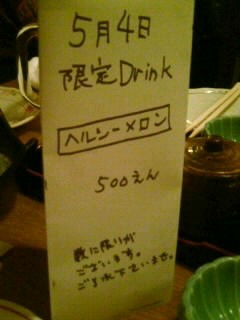 5月4日
限定Drink
ヘルシーメロン
500えん
数に限りが
ございます。
ご了承下さいませ。